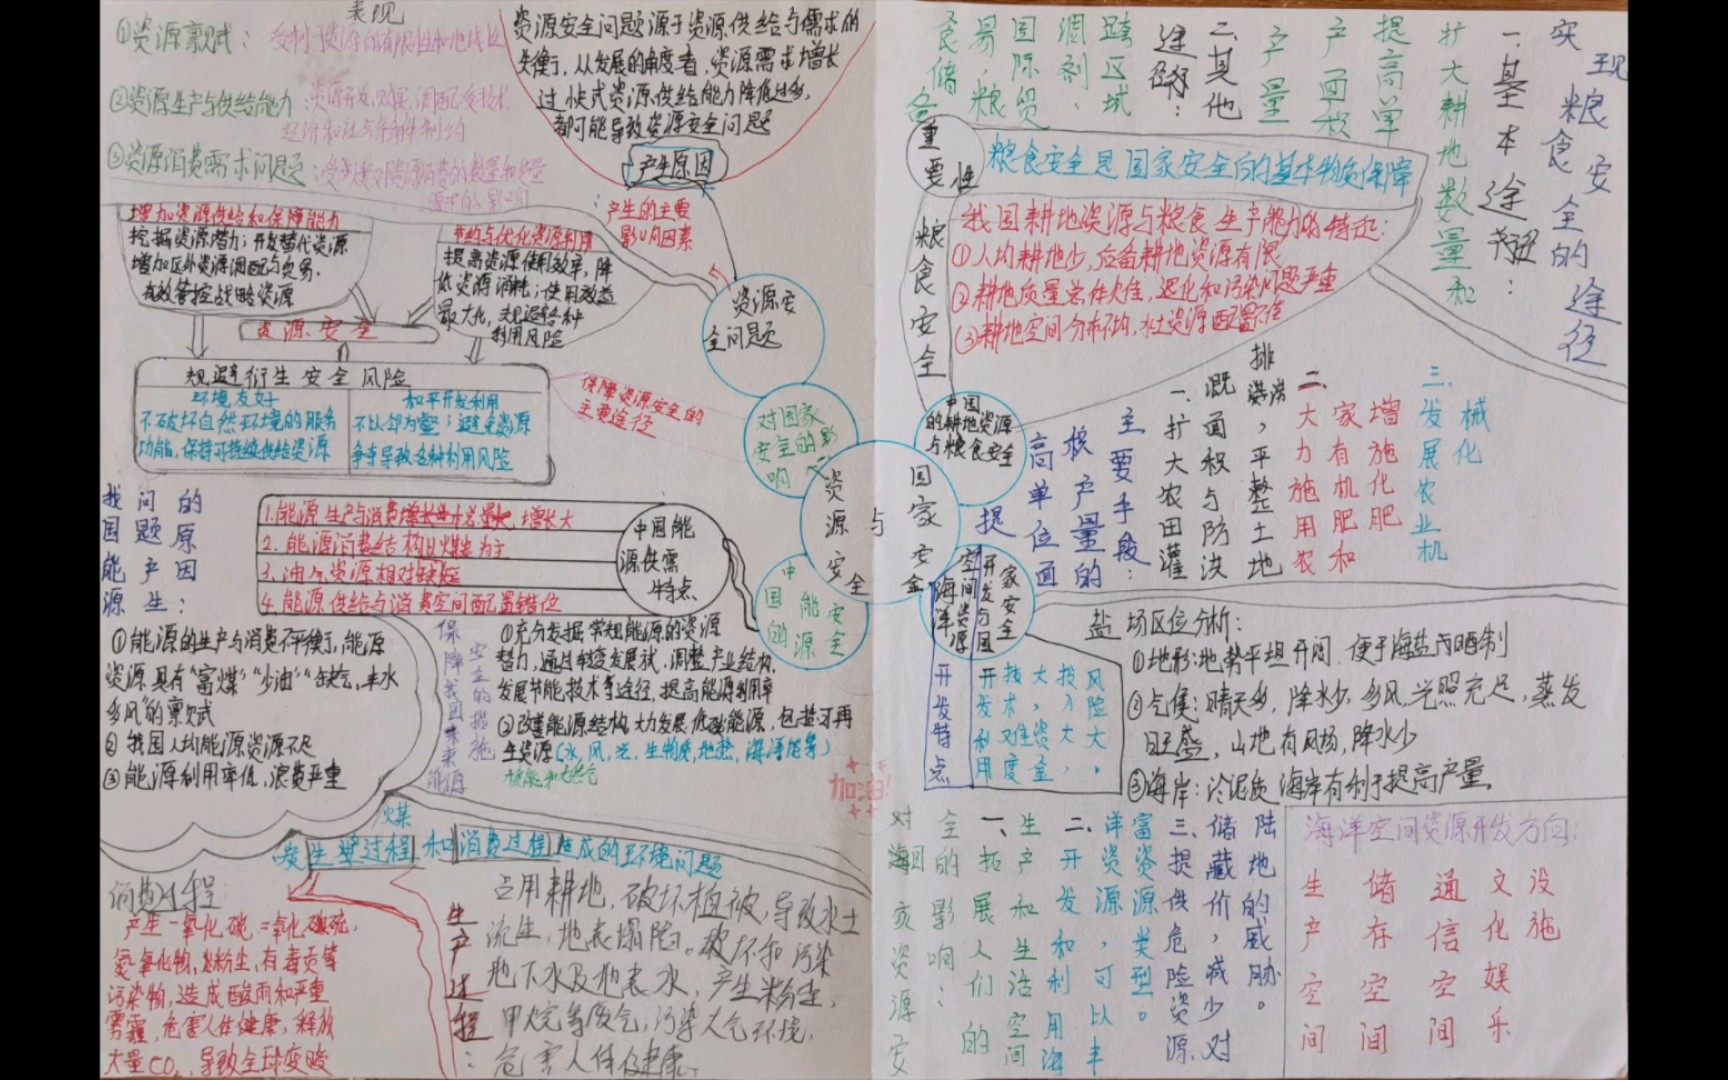 表现
①资源禀赋：受制于资源的有限性和地域性
②资源生产与供给能力：资源开发、对外调配受技术
经济和社会条件制约
③资源消费需求问题：受制度对资源消费的数量和质量
要求的影响
资源安全问题源于资源供给与需求的
失衡，从发展的角度看，资源需求增长
过快或资源供给能力降低过多，
都可能导致资源安全问题
产生原因
产生的主要
影响因素
增加资源供给和保障能力
挖掘资源潜力；开发替代资源
增加区外资源调配与交易，
有效管控战略资源
节约与优化资源利用
提高资源使用效率，降
低资源消耗；使用效益
最大化，规避各种
利用风险
资源安全
规避衍生安全风险
环境友好
不破坏自然环境的服务
功能，保持可持续供给资源
和平开发利用
不以邻为壑；避免资源
争夺导致各种利用风险
保障资源安全的
主要途径
资源安
全问题
对国家
安全的影
响
资源安全
与
国家安全
中国的能源安全
我国能源
问题产生
的原因：
1.能源生产与消费增长总量大，增长大
2.能源消费结构以煤炭为主
3.油气资源相对缺短
4.能源供给与消费空间配置错位
中国能
源供需
特点
①能源的生产与消费不平衡，能源
资源具有“富煤”“少油”“缺气，丰水
多风”的禀赋
②我国人均能源资源不足
③能源利用率低，浪费严重
保障我国未来能源
安全的措施
①充分发掘常规能源的资源
潜力，通过转变发展状，调整产业结构，
发展节能技术等途径，提高能源利用率
②改善能源结构，大力发展低碳能源，包括可再
生资源（水，风，光，生物质，地热，海洋能等）
核能和天然气
加油！
煤
发生产过程和消费过程造成的环境问题
消费过程：
产生一氧化碳 二氧化硫，
氮氧化物，粉尘，有毒页等
污染物，造成酸雨和严重
雾霾，危害人体健康，释放
大量CO₂，导致全球变暖
生产过程：
占用耕地，破坏植被，导致水土
流失，地表塌陷。破坏和污染
地下水及地表水，产生粉尘，
甲烷等废气，污染大气环境，
危害人体健康。
实现粮食安全的途径
一.基本途径：
扩大耕地数量和
提高单
产面积
产量
二.其他
途径：
跨区域
调剂；
国际贸
易，粮
食储备
重要性
粮食安全是国家安全的基本物质保障
粮食安全
我国耕地资源与粮食生产能力的特征：
①人均耕地少，后备耕地资源有限
②耕地质量总体欠佳，退化和污染问题严重
③耕地空间分布不均，水土资源配置不佳
中国
的耕地资源
与粮食安全
提高单位面
积产量的
主要手段：
一.扩大农田灌
溉面积与防洪
排涝，平整土地
二.
大力施用农
家有机肥和
增施化肥
三.
发展农业机
械化
海洋空间资源
开发与国家安全
开发特点
开发利用
技术难度
大，资金
投入大，
风险大。
盐场区位分析：
①地形：地势平坦开阔，便于海盐内晒制
②气候：晴天多，降水少，多风，光照充足，蒸发
旺盛，山地有风场，降水少
③海岸：冷泥质海岸有利于提高产量
对国家资源安
全的影响：
一、拓展人们的
生产和生活空间
二.开发和利用海
洋资源，可以丰
富资源类型。
三.提供危险资源
储藏价，减少对
陆地的威胁。
海洋空间资源开发方向：
生产空间
储存空间
通信空间
文化娱乐
设施